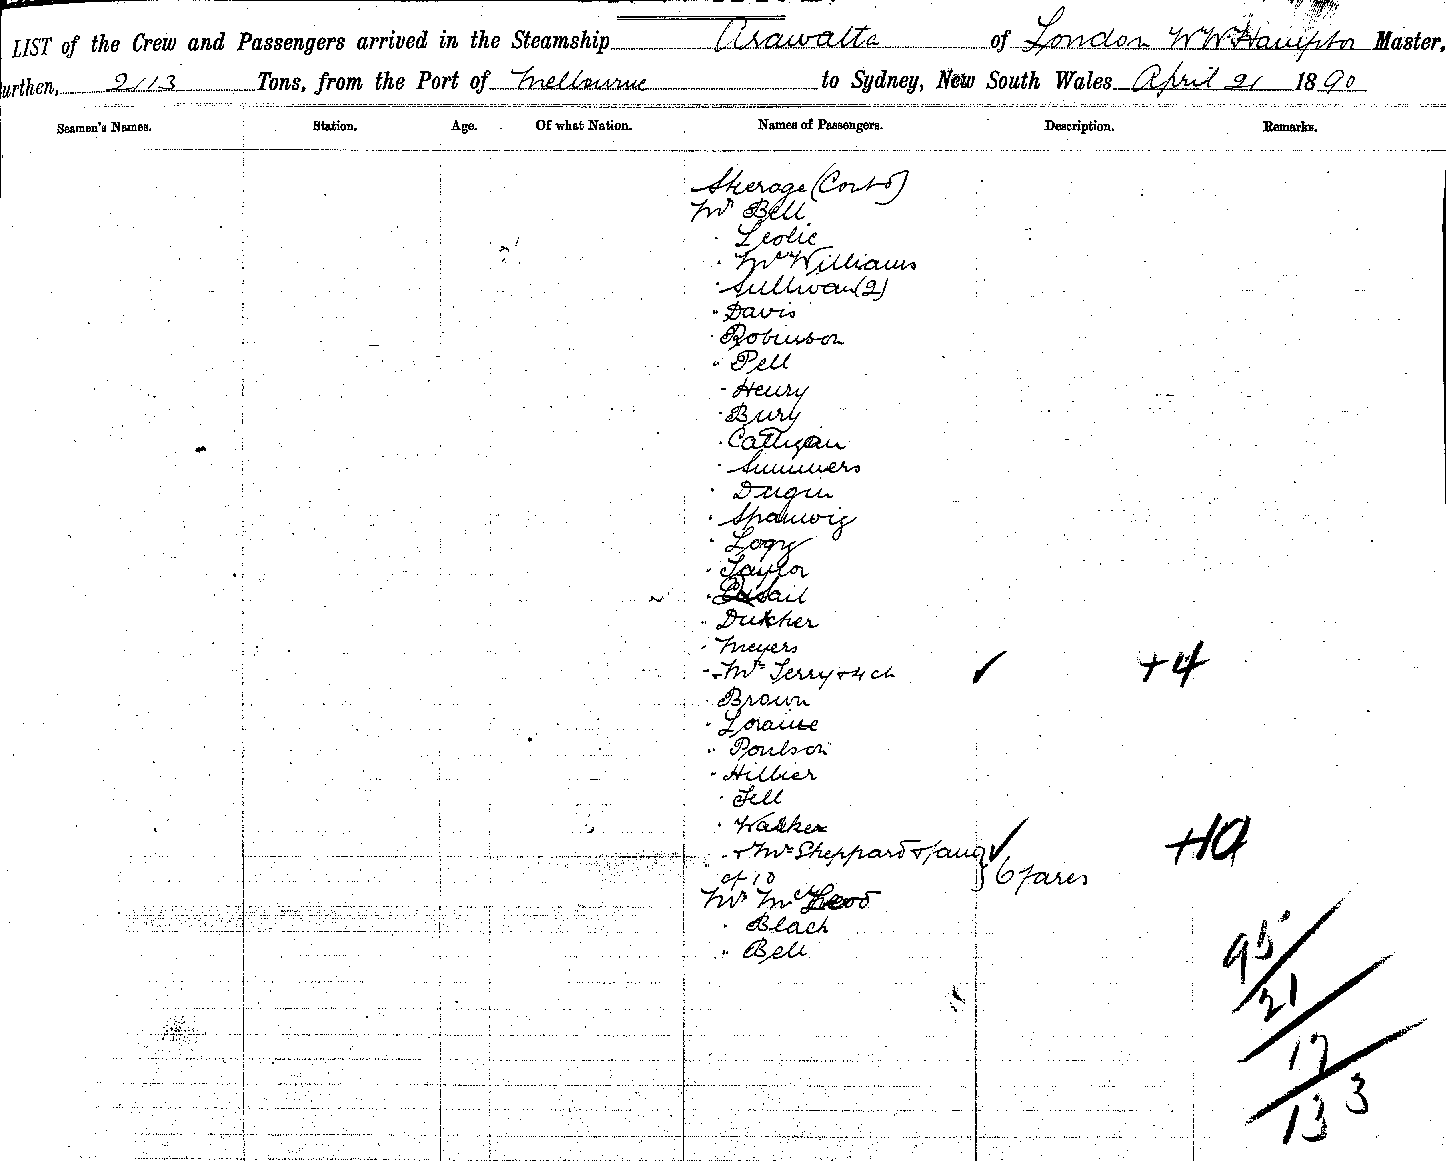 LIST of the Crew and Passengers arrived in the Steamship Arawatta of London W W Hampton Master,
urthen, 2113 Tons, from the Port of Melbourne to Sydney, New South Wales April 21 1890
Seamen's Names. Station. Age. Of what Nation. Names of Passengers. Description. Remarks.
Steerage (Contd)
Mr Bell
" Leslie
" McWilliams
" Sullivan (2)
" Davis
" Robinson
" Pell
" Henry
" Bury
" Cattigan
" Summers
" Dugin
" Spanwig
" Logy
" Taylor
"
" Dutcher
" Meyers
" Mrs Terry + 4 ch ✓ +4
" Brown
" Loraine
" Poulson
" Hillier
" Tell
" Walker
" + Mrs Sheppard & family ✓ +10
of 10 } 6 fares
Mr McLeod
" Black
" Bell
95
21
17
133